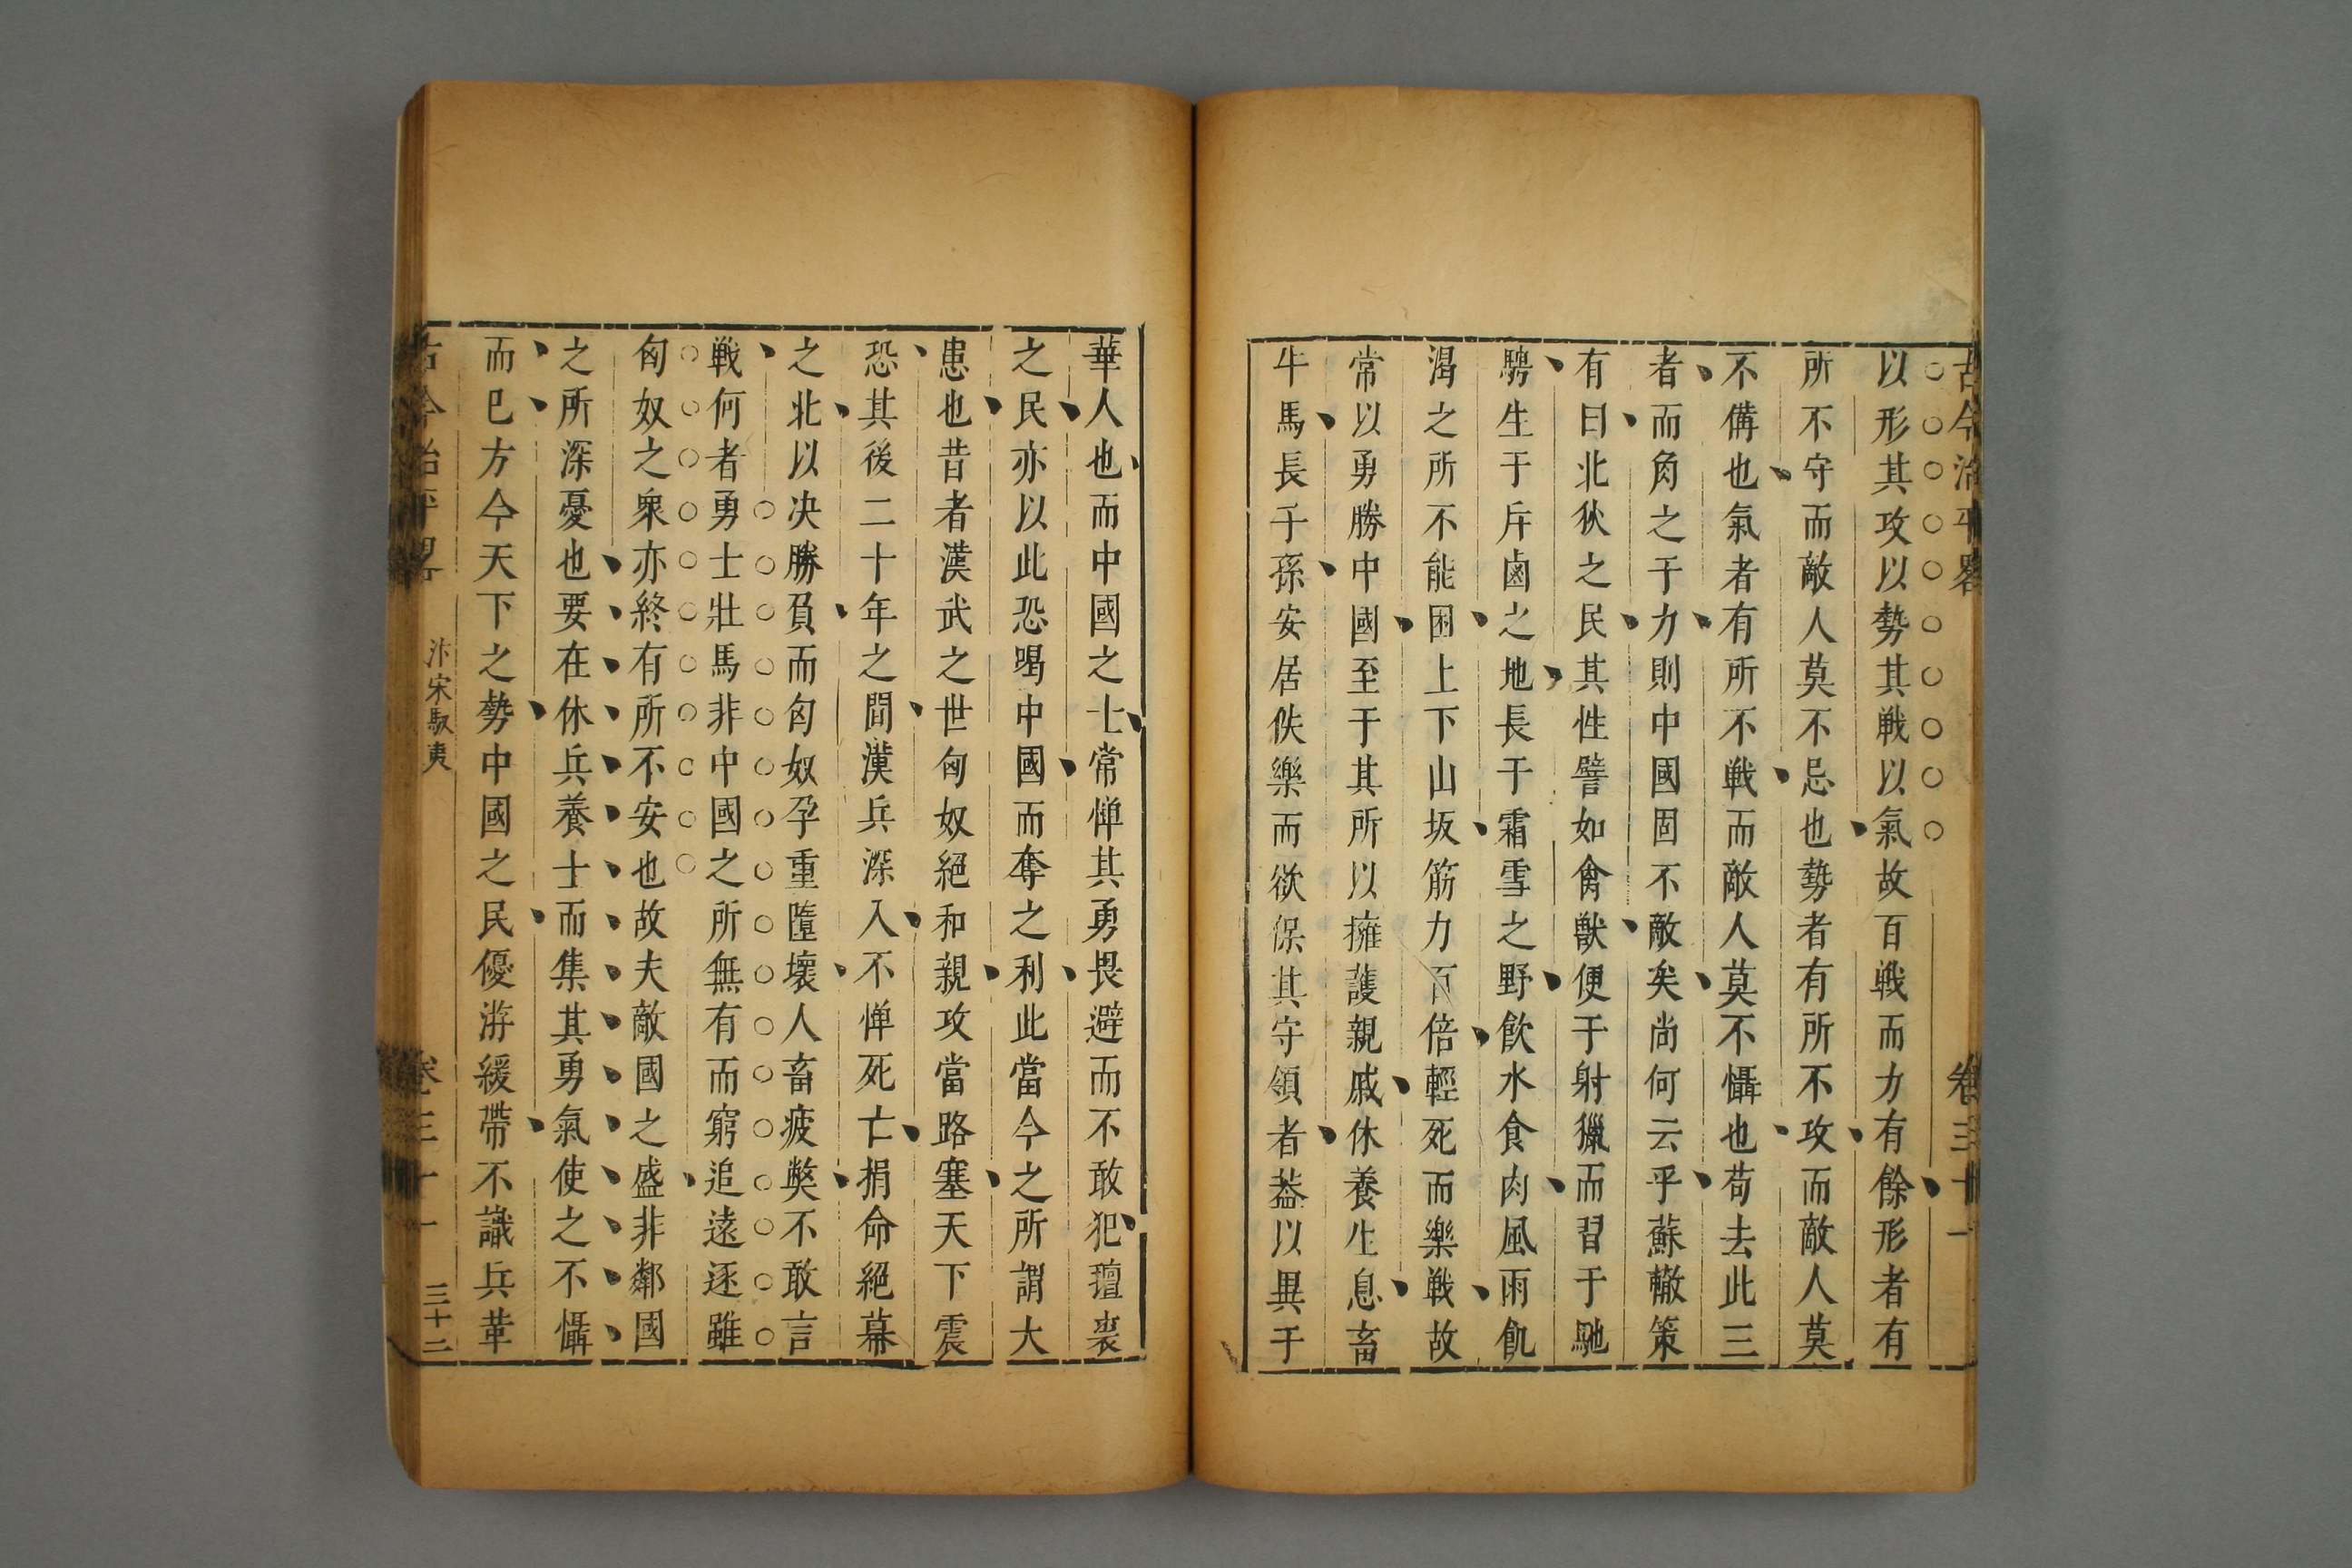 古今治平畧
卷三十一
以形其攻以勢其戰以氣故百戰而力有餘形者有
所不守而敵人莫不忌也勢者有所不攻而敵人莫
不備也氣者有所不戰而敵人莫不懾也苟去此三
者而角之于力則中國固不敵矣尚何云乎蘇轍策
有曰北狄之民其性譬如禽獸便于射獵而習于馳
騁生于斥鹵之地長于霜雪之野飲水食肉風雨飢
渴之所不能困上下山坂筋力百倍輕死而樂戰故
常以勇勝中國至于其所以擁護親戚休養生息畜
牛馬長子孫安居佚樂而欲保其守領者葢以異于
華人也而中國之士常憚其勇畏避而不敢犯氊裘
之民亦以此恐喝中國而奪之利此當今之所謂大
患也昔者漢武之世匈奴絕和親攻當路塞天下震
恐其後二十年之間漢兵深入不憚死亡捐命絕幕
之北以决勝負而匈奴孕重墮壞人畜疲獘不敢言
戰何者勇士壯馬非中國之所無有而窮追遠逐雖
匈奴之衆亦終有所不安也故夫敵國之盛非鄰國
之所深憂也要在休兵養士而集其勇氣使之不懾
而已方今天下之勢中國之民優游緩帶不識兵革
古今治平畧
汴宋馭夷
卷三十一
三十二